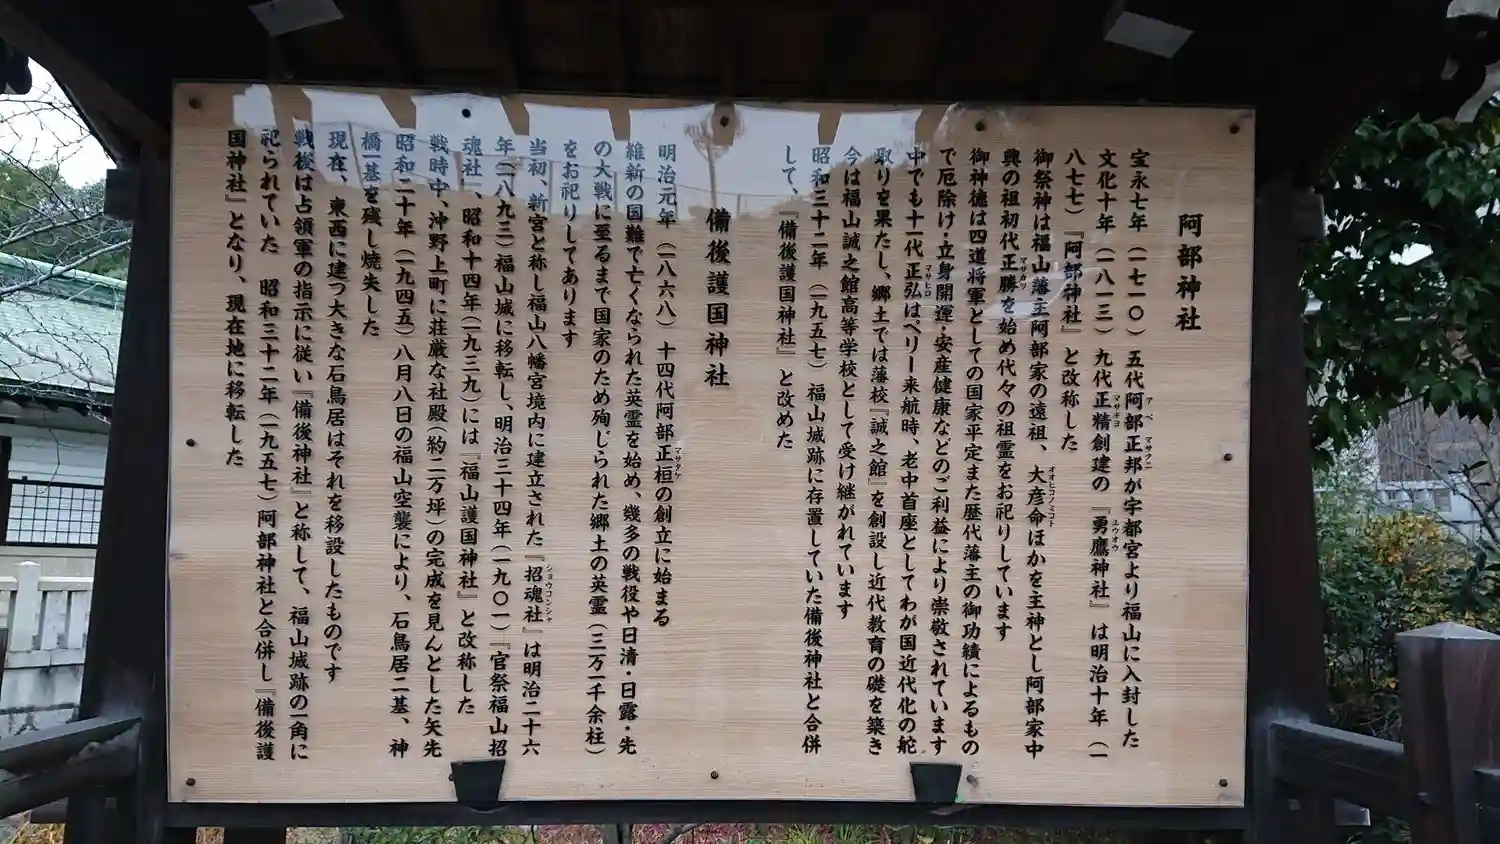 阿部神社
宝永七年（一七一〇）五代阿部正邦が宇都宮より福山に入封した
文化十年（一八一三）九代正精創建の『勇鷹神社』は明治十年（一
八七七）『阿部神社』と改称した
御祭神は福山藩主阿部家の遠祖、大彦命ほかを主神とし阿部家中
興の祖初代正勝を始め代々の祖霊をお祀りしています
御神徳は四道将軍としての国家平定また歴代藩主の御功績によるもの
で厄除け・立身開運・安産健康などのご利益により崇敬されています
中でも十一代正弘はペリー来航時、老中首座としてわが国近代化の舵
取りを果たし、郷土では藩校『誠之館』を創設し近代教育の礎を築き
今は福山誠之館高等学校として受け継がれています
昭和三十二年（一九五七）福山城跡に存置していた備後神社と合併
して、『備後護国神社』と改めた
備後護国神社
明治元年（一八六八）十四代阿部正桓の創立に始まる
維新の国難で亡くなられた英霊を始め、幾多の戦役や日清・日露・先
の大戦に至るまで国家のため殉じられた郷土の英霊（三万一千余柱）
をお祀りしてあります
当初、新宮と称し福山八幡宮境内に建立された『招魂社』は明治二十六
年（一八九三）福山城に移転し、明治三十四年（一九〇一）『官祭福山招
魂社』、昭和十四年（一九三九）には『福山護国神社』と改称した
戦時中、沖野上町に荘厳な社殿（約二万坪）の完成を見んとした矢先
昭和二十年（一九四五）八月八日の福山空襲により、石鳥居二基、神
橋一基を残し焼失した
現在、東西に建つ大きな石鳥居はそれを移設したものです
戦後は占領軍の指示に従い『備後神社』と称して、福山城跡の一角に
祀られていた　昭和三十二年（一九五七）阿部神社と合併し『備後護
国神社』となり、現在地に移転した